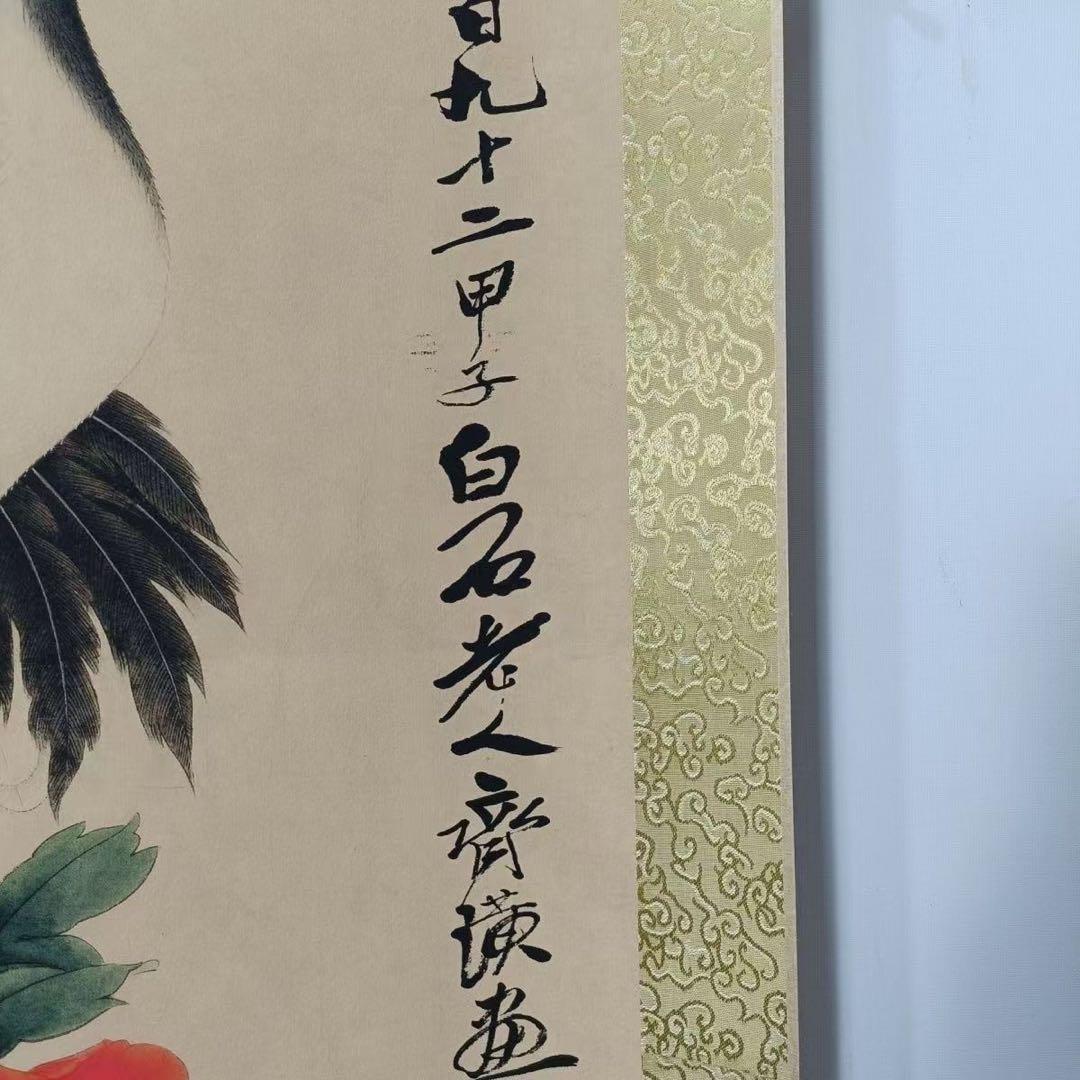 九十二甲子白石老人齊璜画